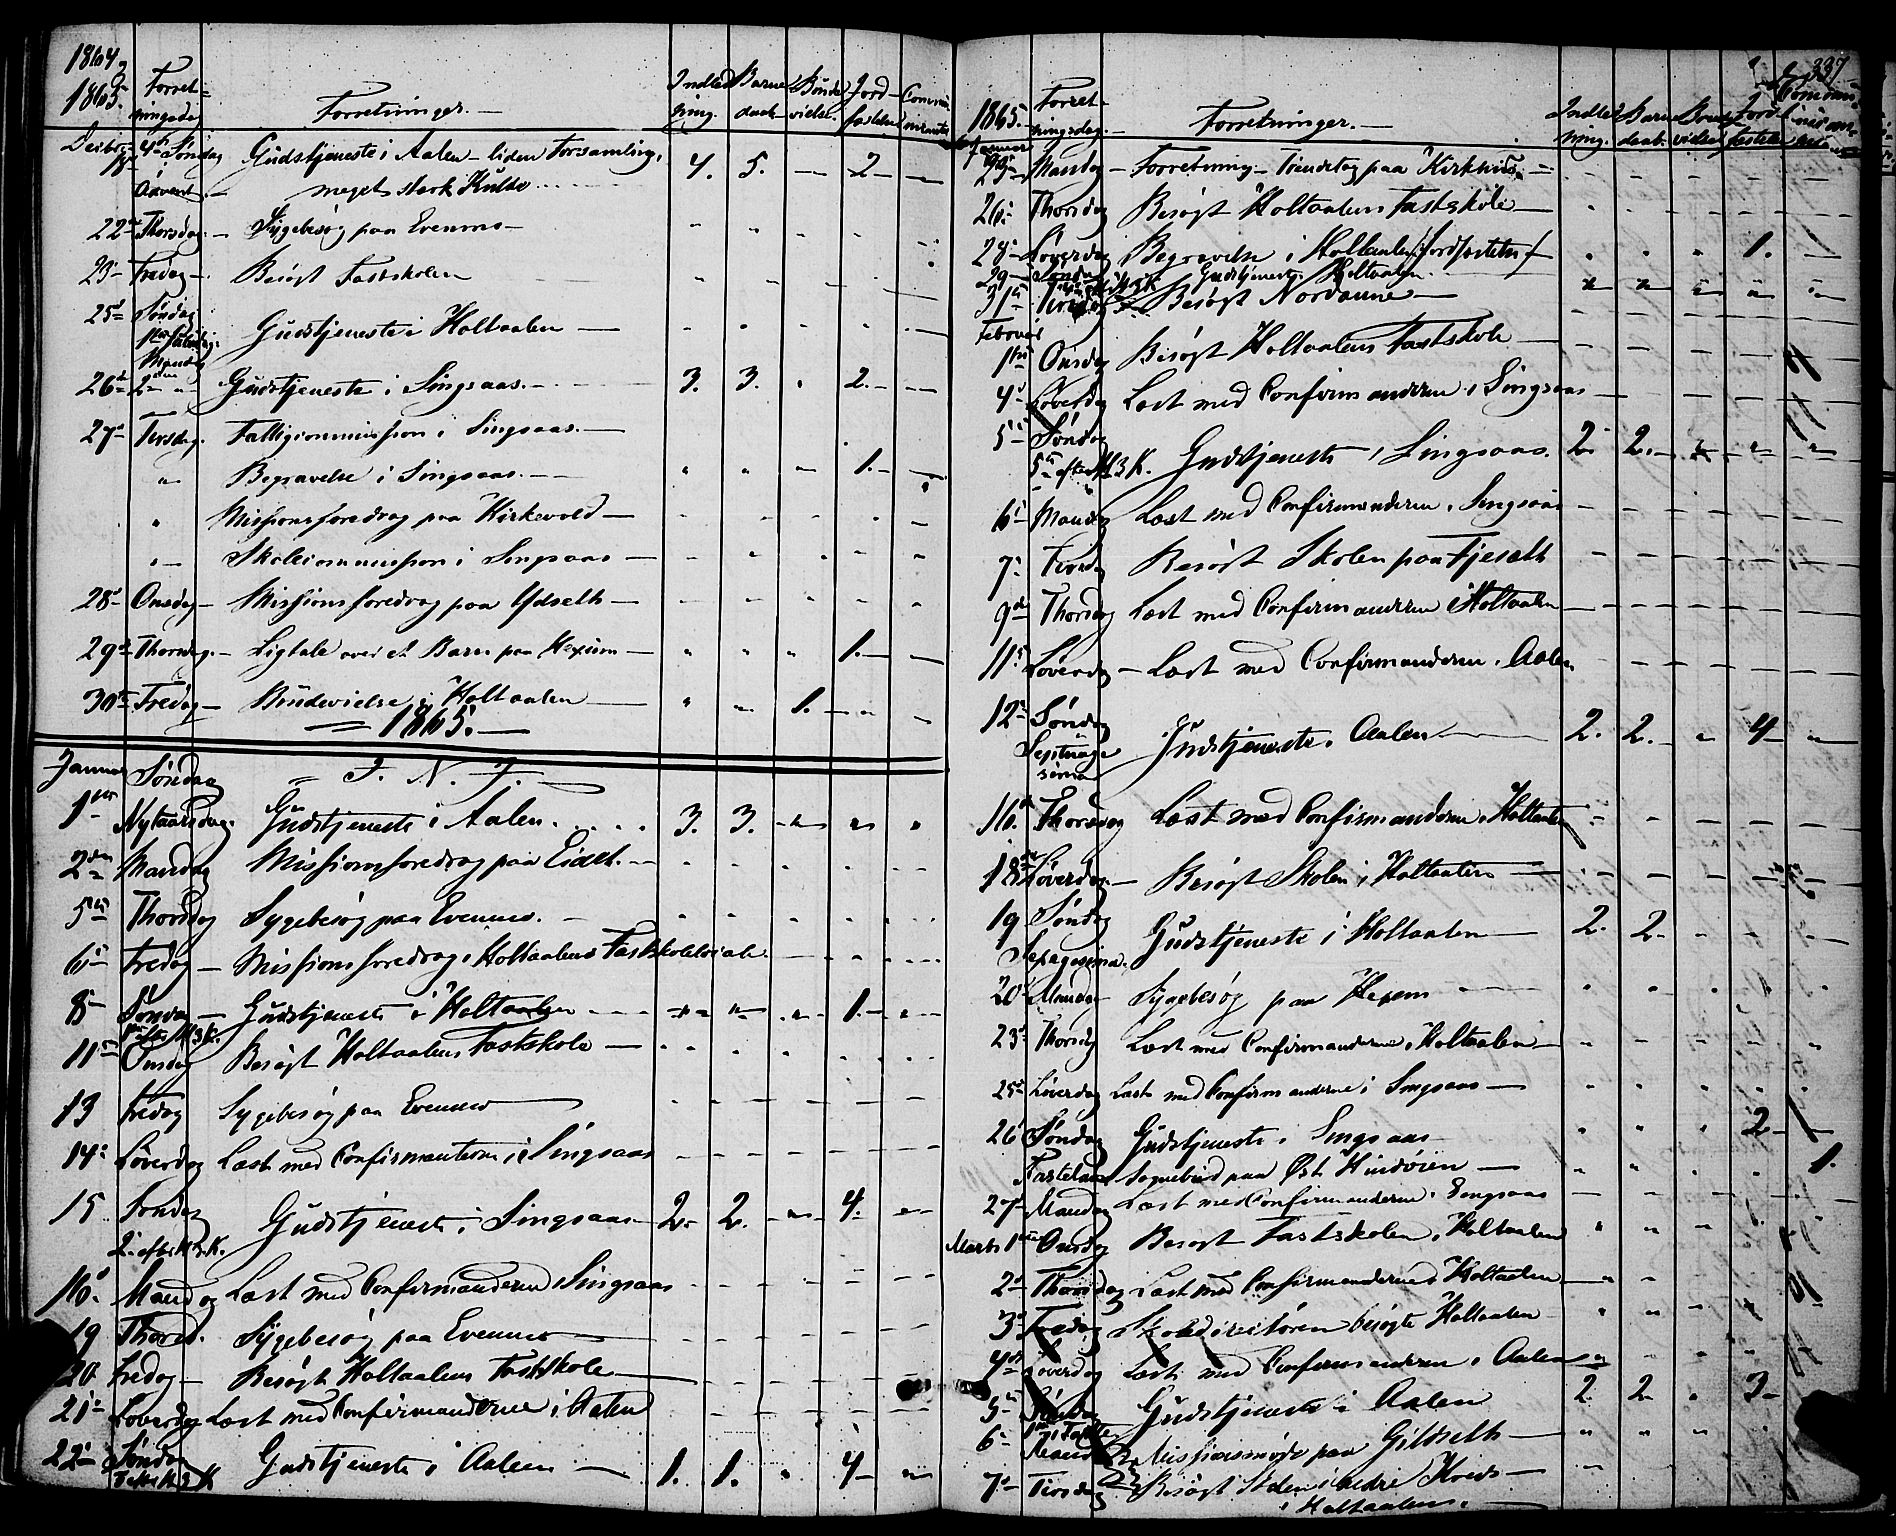 1864,
1865. Forret-
ningsdag Forretninger. Indled-
ning. Barne
daab Brude
vielse. Jord-
fæstelse Commu
nicanter
Decbr
18de 4de Søndag
Advent. Gudstjeneste i Aalen - liden Forsamling, 4. 5. 2
meget stærk Kulde
22de Thorsdag Sygebesøg paa Evenmo
23de Fredag Besøgt Fastskolen
25de Søndag
1ste Juledag Gudstjeneste i Holtaalen
Mandag
26de 2den " Gudstjeneste i Singsaas. 3. 3. 2.
27de Tirsdag. Fattigcommission i Singsaas.
" Begravelse i Singsaas. 1.
" Missionsforedrag paa Kirkevold
" Skolecommission i Singsaas
28de Onsdag Missionsforedrag paa Ydseth
29de Thorsdag. Ligtale over et Barn paa Hexum 1.
30te Fredag Brudevielse i Holtaalen 1.
1865.
Januar Søndag J. N. J.
1ste Nytaarsdag. Gudstjeneste i Aalen. 3. 3.
2den Mandag Missionsforedrag paa Eidet.
5te Thorsdag Sygebesøg paa Evenmo.
6te Fredag Missionsforedrag i Holtaalens Fastskolelocale
8de Søndag Gudstjeneste i Holtaalen 1.
1ste efter H3K.
11te Onsdag Besøgt Holtaalens Fastskole
13 Fredag Sygebesøg paa Evenmo
14de Løverdag Læst med Confirmanterne i Singsaas
15 Søndag Gudstjeneste i Singsaas 2. 2. 4.
2den efter H.3.K.
16de Mandag Læst med Confirmanderne i Singsaas
19 Thorsd. Sygebesøg paa Evenmo
20 Fredag Besøgt Holtaalens Fastskole
21de Løverdag Læst med Confirmanderne i Aalen
22de Søndag Gudstjeneste i Aalen 1. 1. 4
3die e. H 3 K
337
1865. Forret-
ningsdag. Forretninger. Indled
ning. Barne
daab. Brude
vielse Jord-
fæstelse Commu-
nicanter
Januar
23de Mandag Forretning - Tiendetog paa Kirkhus.
26de Thorsdag Besøgt Holtaalens Fastskole
28de Løverdag Begravelse i Holtaalen /: Jordfæstelse :/ 1.
29 Søndag Gudstjeneste i Holtaalen.
31te Tirsdag Besøgt Nordaune
Februar
1ste Onsdag Besøgt Holtaalens Fastskole
4de Løverdag Læst med Confirmanderne i Singsaas
5te Søndag
5te efter H3K. Gudstjeneste i Singsaas. 2. 2.
6te Mandag Læst med Confirmanderne i Singsaas
7de Tirsdag Besøgt Skolen paa Fjeseth
9de Thorsdag Læst med Confirmanderne i Holtaalen
11te Løverdag Læst med Confirmanderne i Aalen
12te Søndag
Septuage
sima Gudstjeneste i Aalen 2. 2. 4
16de Thorsdag Læst med Confirmanderne i Holtaalen
18de Løverdag Besøgt Skolen i Holtaalen
19 Søndag
Sexagesima. Gudstjeneste i Holtaalen 2. 2.
20de Mandag Sygebesøg paa Hexem
23de Thorsdag Læst med Confirmanderne i Holtaalen
25de Løverdag Læst med Confirmanderne i Singsaas
26 Søndag Gudstjeneste i Singsaas 2
Fastelavn Sognebud paa Øst. Hindøien 1.
27de Mandag Læst med Confirmanderne i Singsaas
Marts 1ste Onsdag Besøgt Fastskolen i Holtaalen
2den Thorsdag Læst med Confirmanderne i Holtaalen
3die Fredag Skoledirectøren besøgte Holtaalen
4de Løverdag Læst med Confirmanderne i Aalen
5te Søndag Gudstjeneste i Aalen 2. 2. 3
6te Mand Missionsmøde paa Gildseth
7de Tirsdag Besøgt Skolen i nedre Kreds
i Holtaalen.